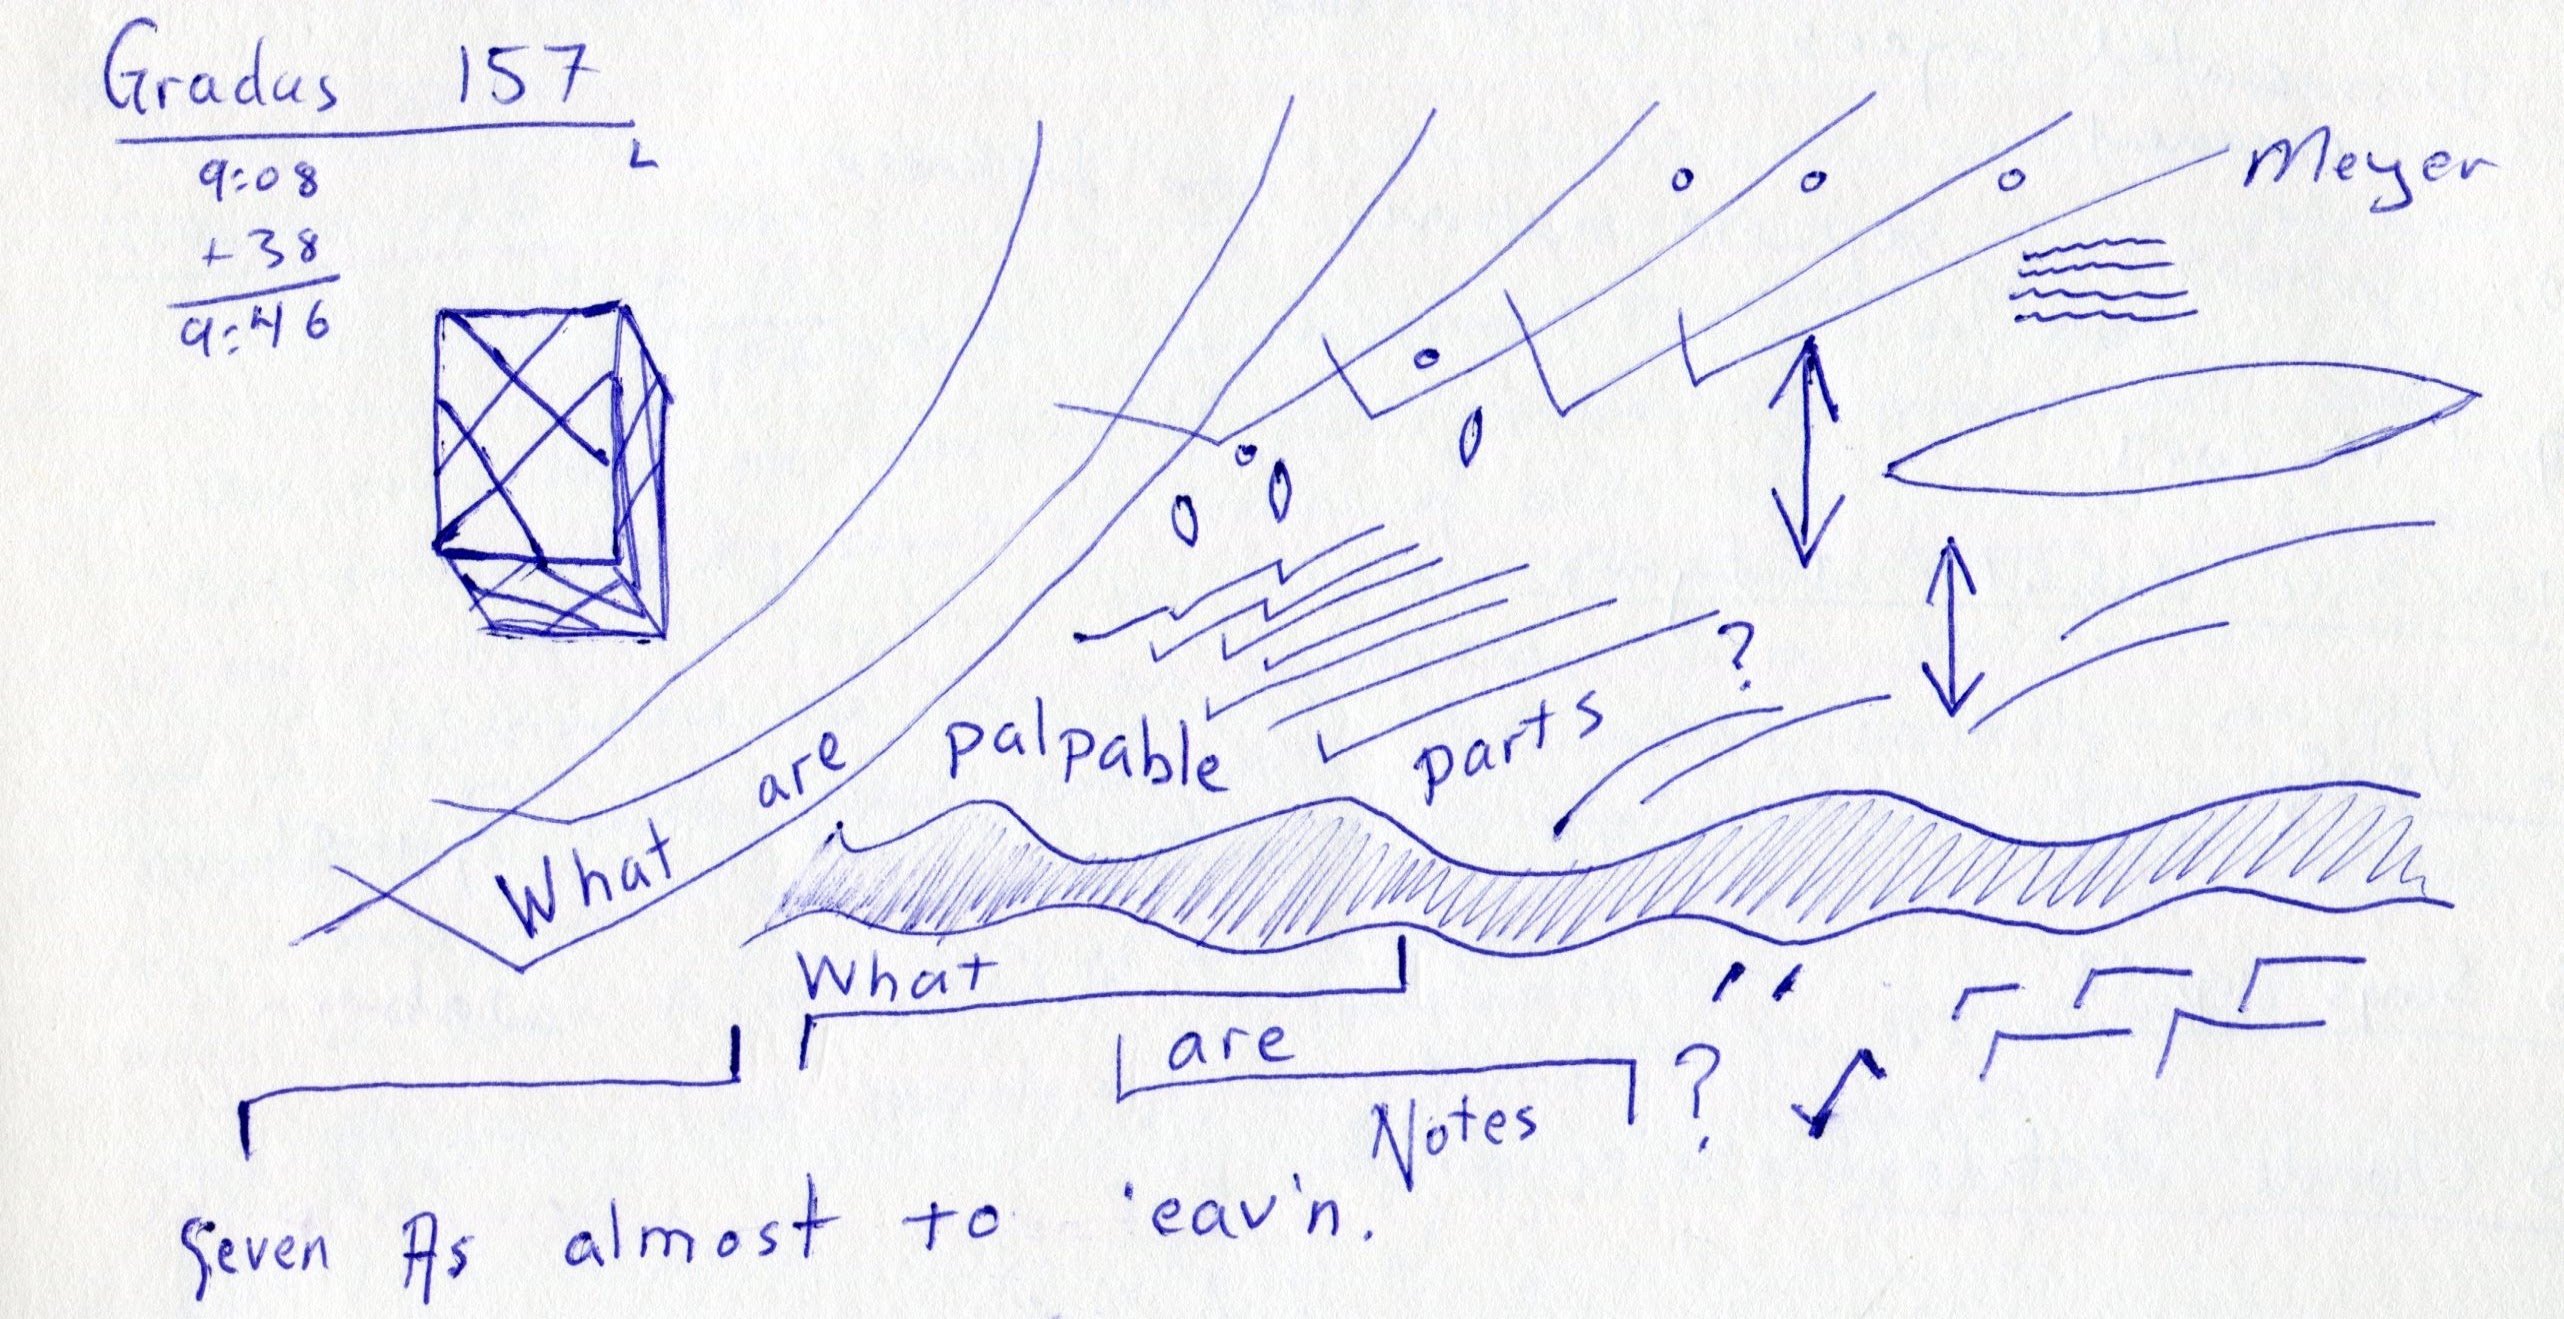 Gradus 157
9:08
+38
9:46
Meyer
What are palpable parts ?
What
are
Notes ?
Seven As almost to 'eav'n.